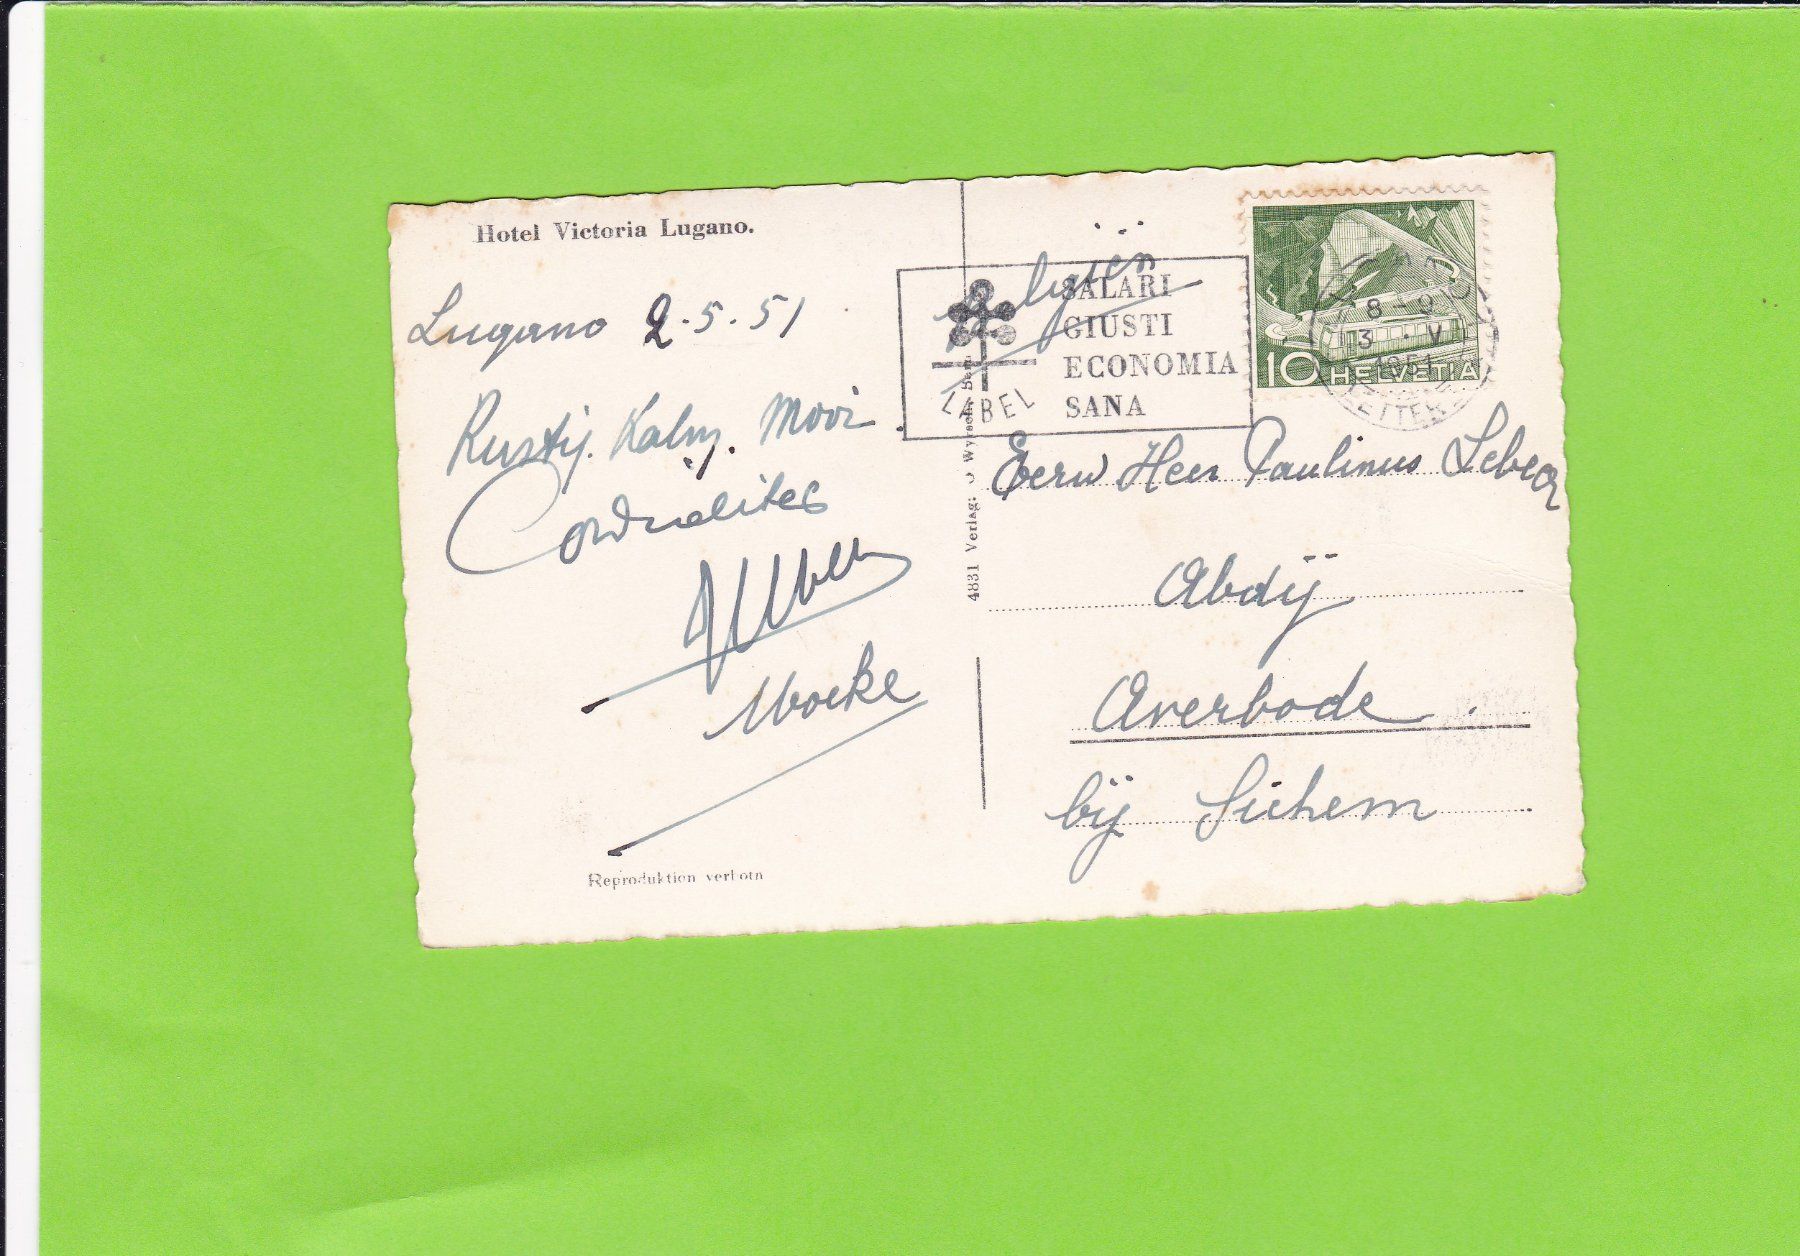 Hotel Victoria Lugano.
Lugano 2.5.51
Rustig. Kalm. Mooi
Cordialites
Reproduktion verbotn
4831 Verlag:
SALARI
GIUSTI
ECONOMIA
SANA
LABEL
10 HELVETIA
8
3 . V
1951
Eerw Heer Paulinus
Abdij
Averbode.
bij Sichem